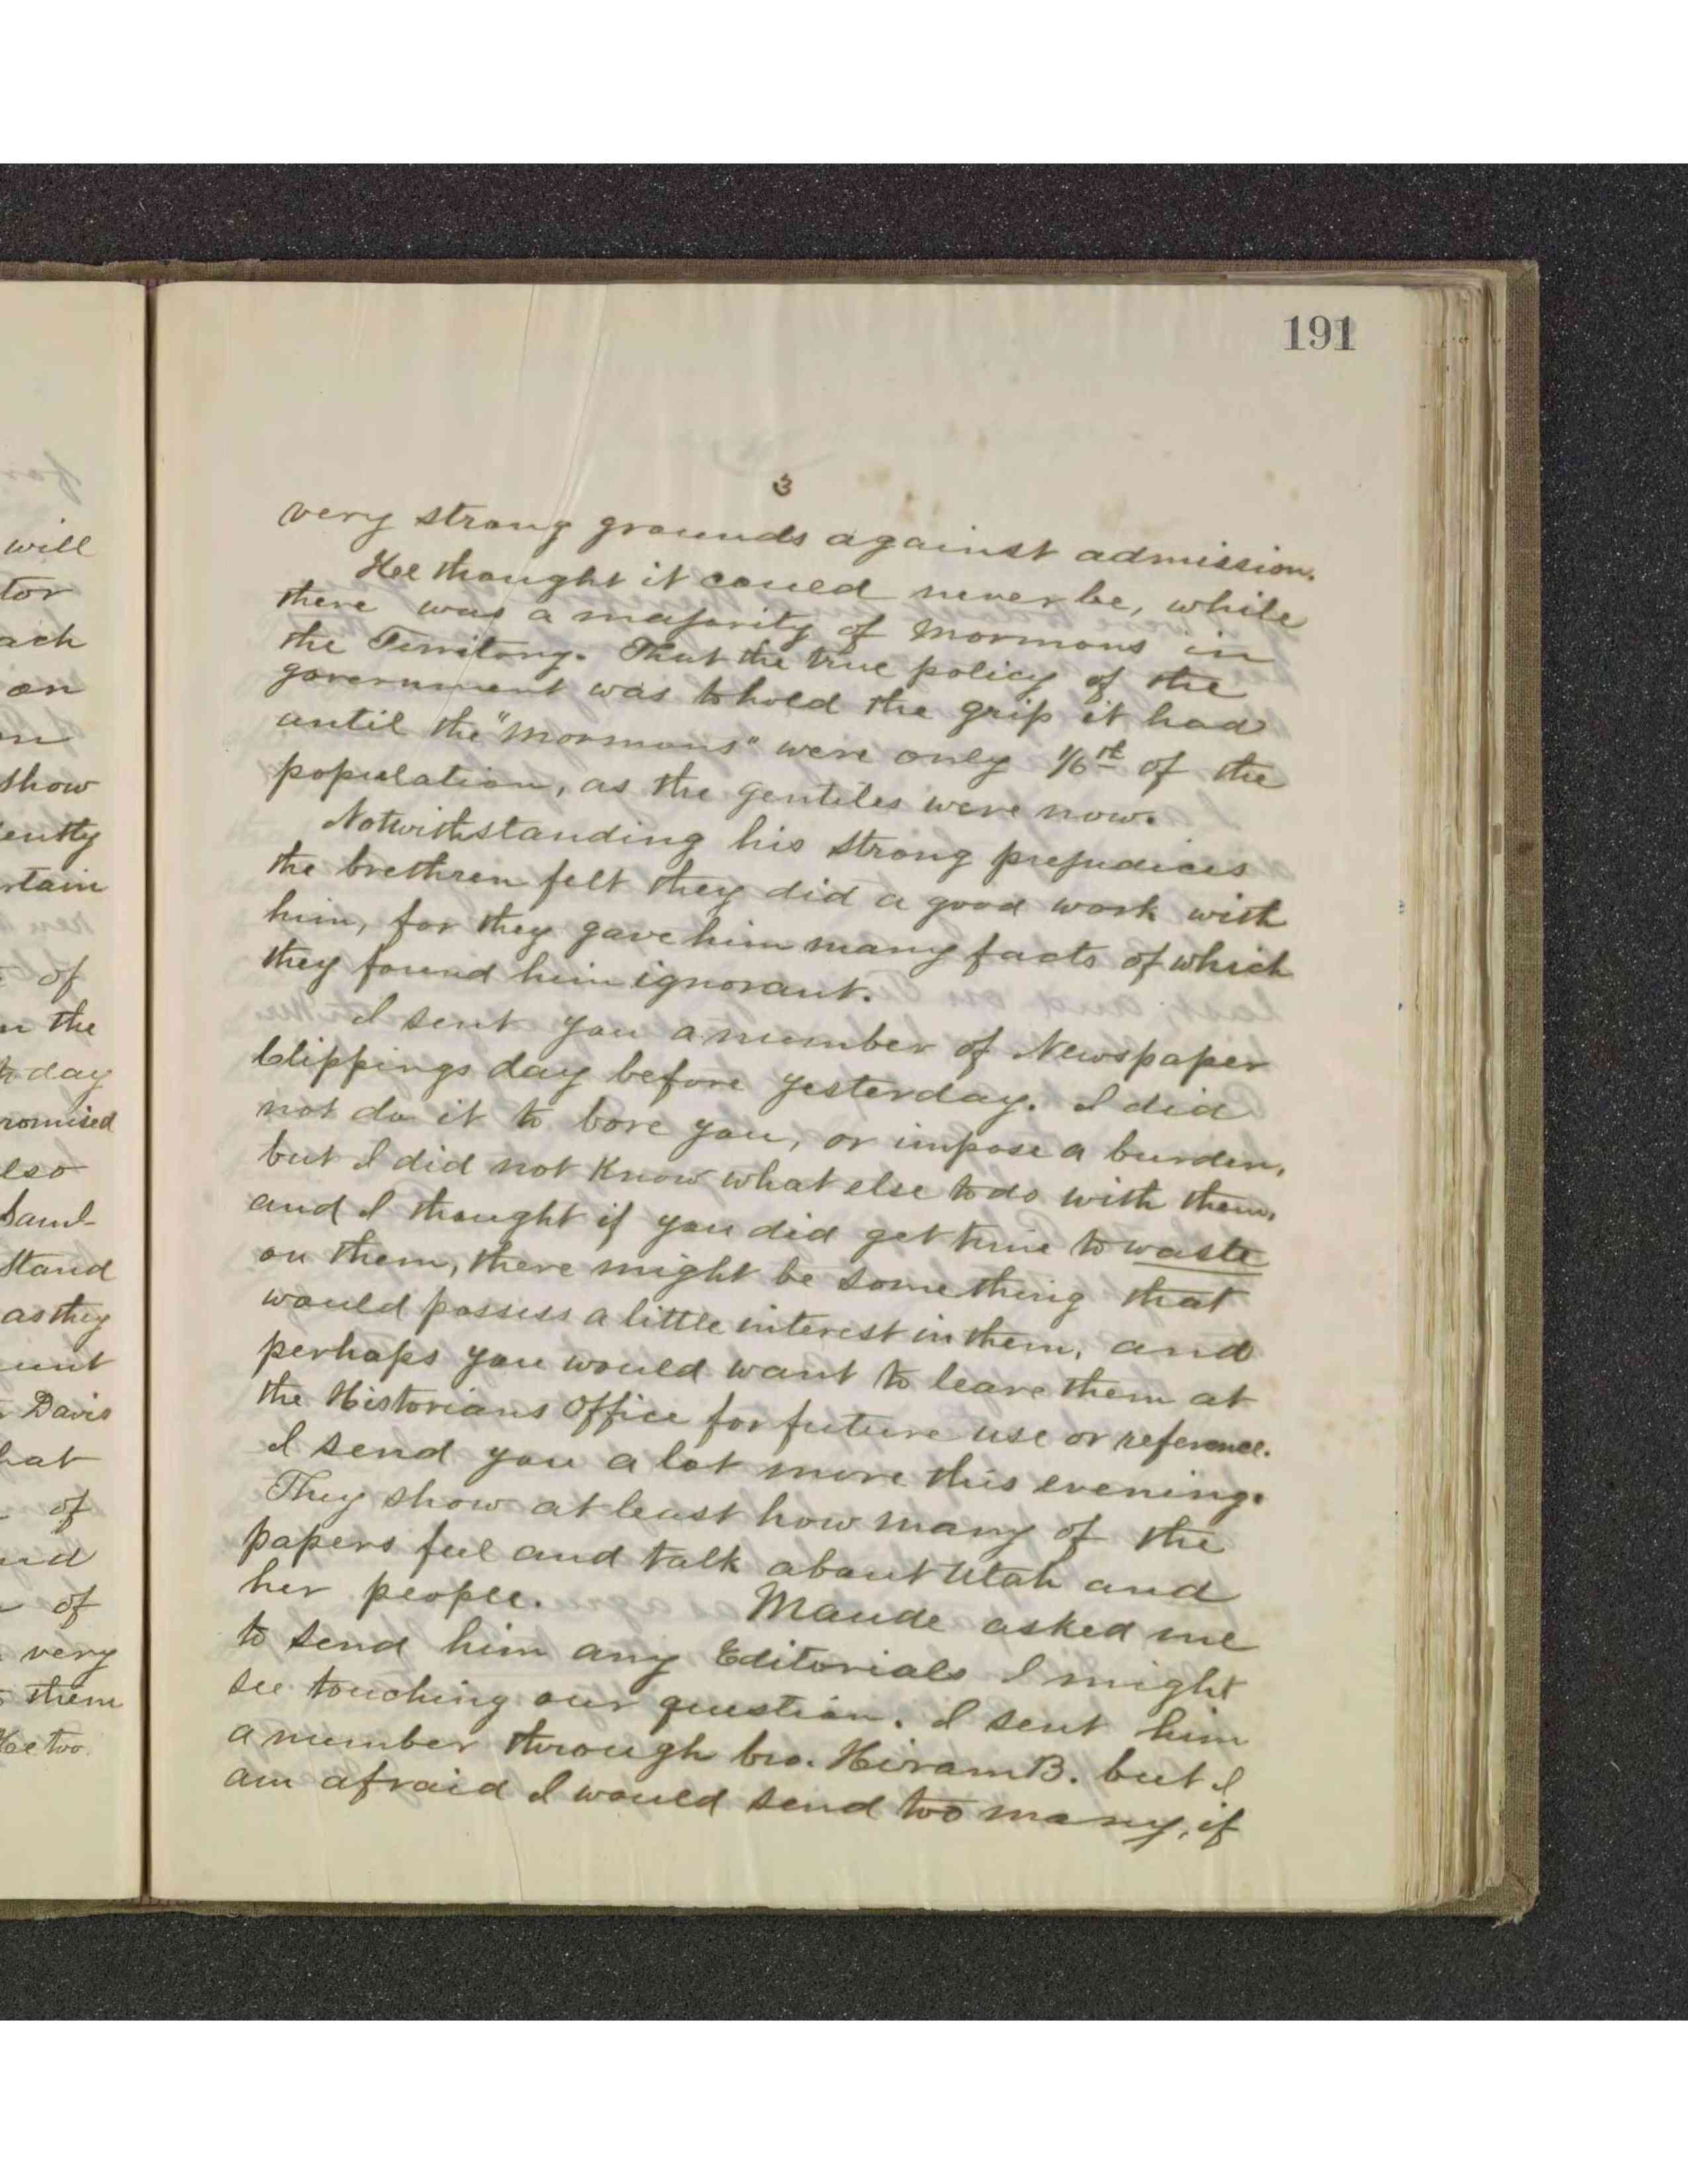 will
tor
ach
on
show
ently
rtain
of
the
to day
romised
lso
Saml
Stand
as they
unt
Davis
hat
of
of
very
them
He too
191
3
very strong grounds against admission.
Hee thought it could never be, while
there was a majority of Mormons in
the Territory. That the true policy of the
government was to hold the grip it had
until the "Mormons" were only 1/6th of the
population, as the gentiles were now.
Notwithstanding his strong prejudices
the brethren felt they did a good work with
him, for they gave him many facts of which
they found him ignorant.
I sent you a number of Newspaper
Clippings day before yesterday. I did
not do it to bore you, or impose a burden,
but I did not know what else to do with them,
and I thought if you did get time to waste
on them, there might be something that
would possess a little interest in them, and
perhaps you would want to leave them at
the Historians Office for future use or reference.
I send you a lot more this evening.
They show at least how many of the
papers feel and talk about Utah and
her people. Maude asked me
to send him any Editorials I might
see touching our question. I sent him
a number through bro. Hiram B. but I
am afraid I would send too many, if